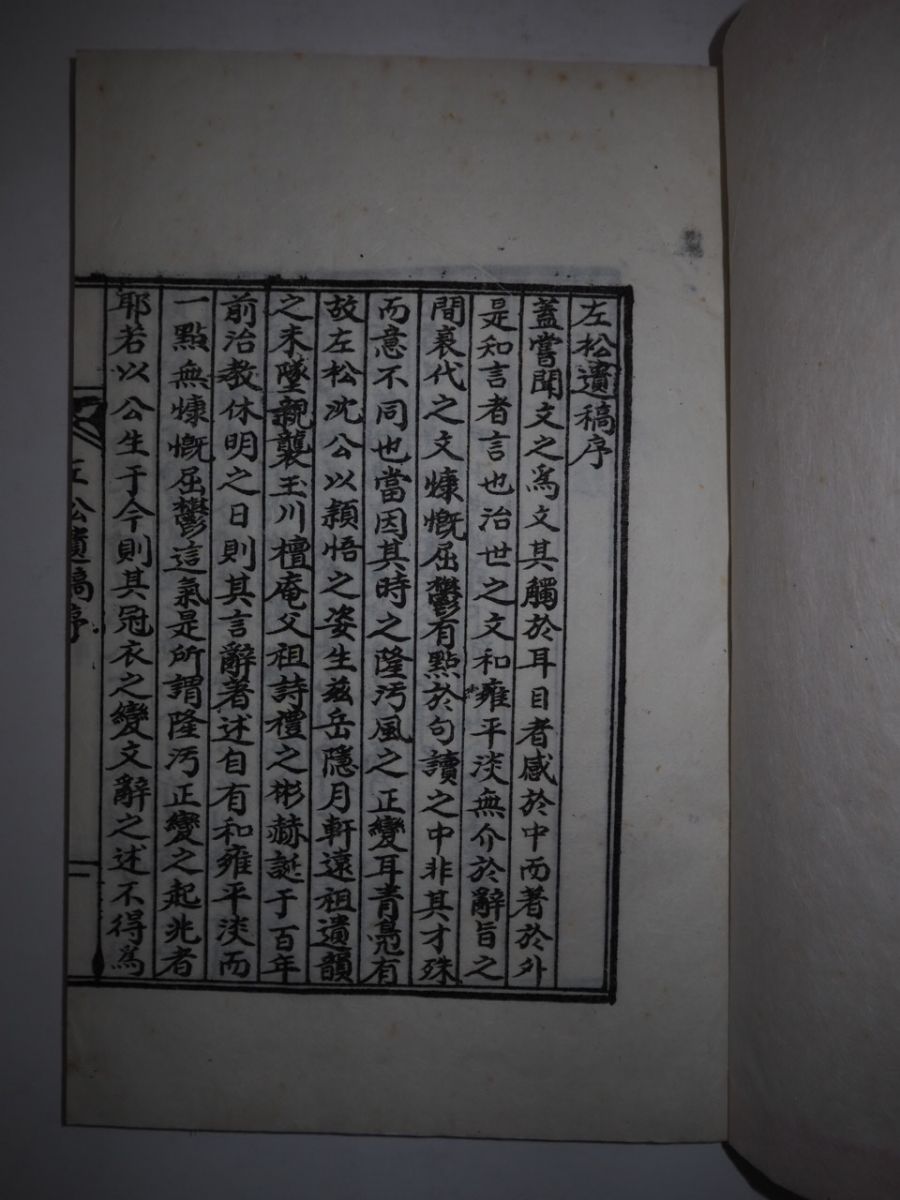 左松遺稿序
蓋嘗聞文之爲文其觸於耳目者感於中而著於外
是知言者言也治世之文和雍平淡無介於辭旨之
間衰代之文慷慨屈鬱有點於句讀之中非其才殊
而意不同也當因其時之隆汚風之正變耳靑鳧有
故左松沈公以穎悟之姿生玆岳隱月軒遠祖遺韻
之未墜親襲玉川檀庵父祖詩禮之彬赫誕于百年
前治敎休明之日則其言辭著述自有和雍平淡而
一點無慷慨屈鬱這氣是所謂隆汚正變之起兆者
耶若以公生于今則其冠衣之變文辭之述不得爲
左松遺稿序